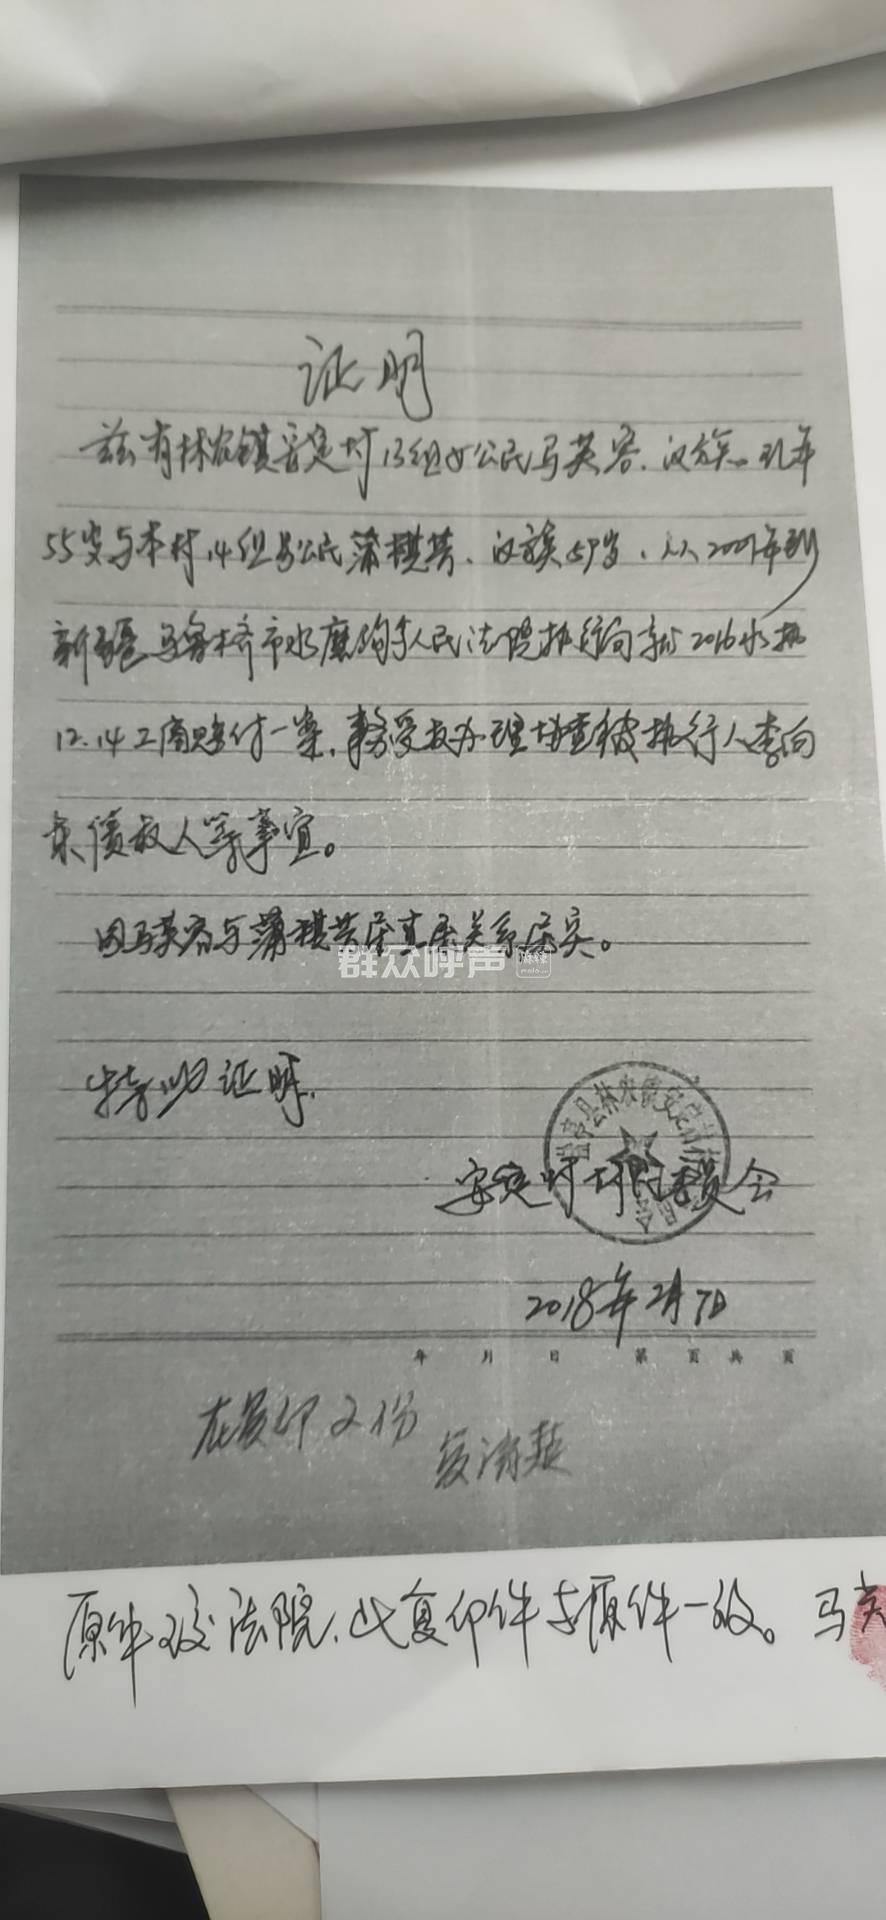 证明
兹有林农镇安定村13组女公民马英容、汉族。现年
55岁与本村14组男公民蒲祺芸、汉族59岁、
新疆乌鲁木齐市水磨沟人民法院执行 2016水执
12.14工商赔付一案,事务受 办理 被执行人李向
债权人等事宜。
因马英容与蒲祺芸 关系属实。
群众呼声
特此证明.
盐亭县林农镇安定村村
安定村村民委员会
2018年2月7日
年 月 日 第 页 共 页
在复印2份
原件 交法院、此复印件与原件一致。马英